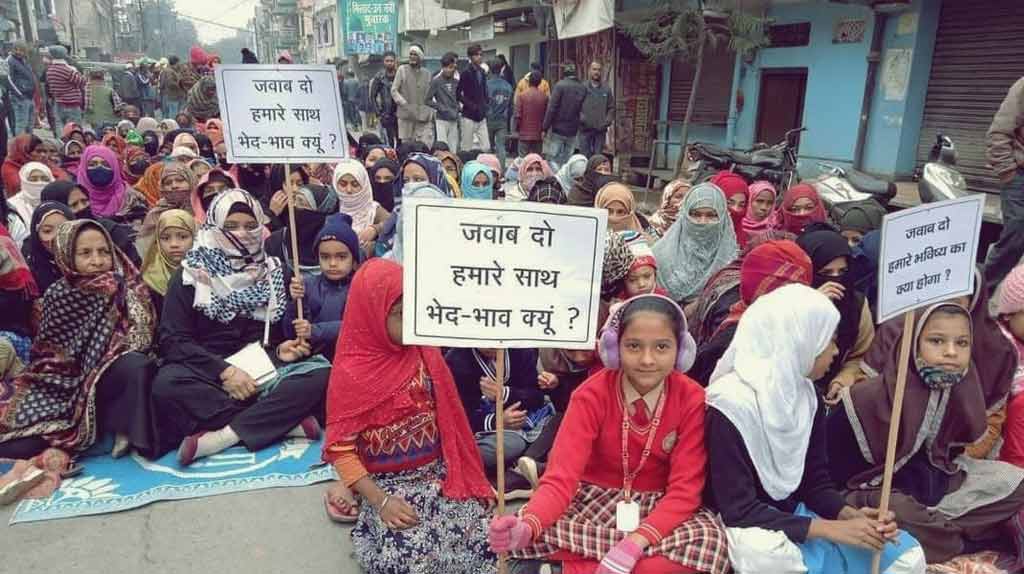 मिलाद-उन नबी
मुबारक
जवाब दो
हमारे साथ
भेद-भाव क्यूं ?
जवाब दो
हमारे साथ
भेद-भाव क्यूं ?
जवाब दो
हमारे भविष्य का
क्या होगा ?